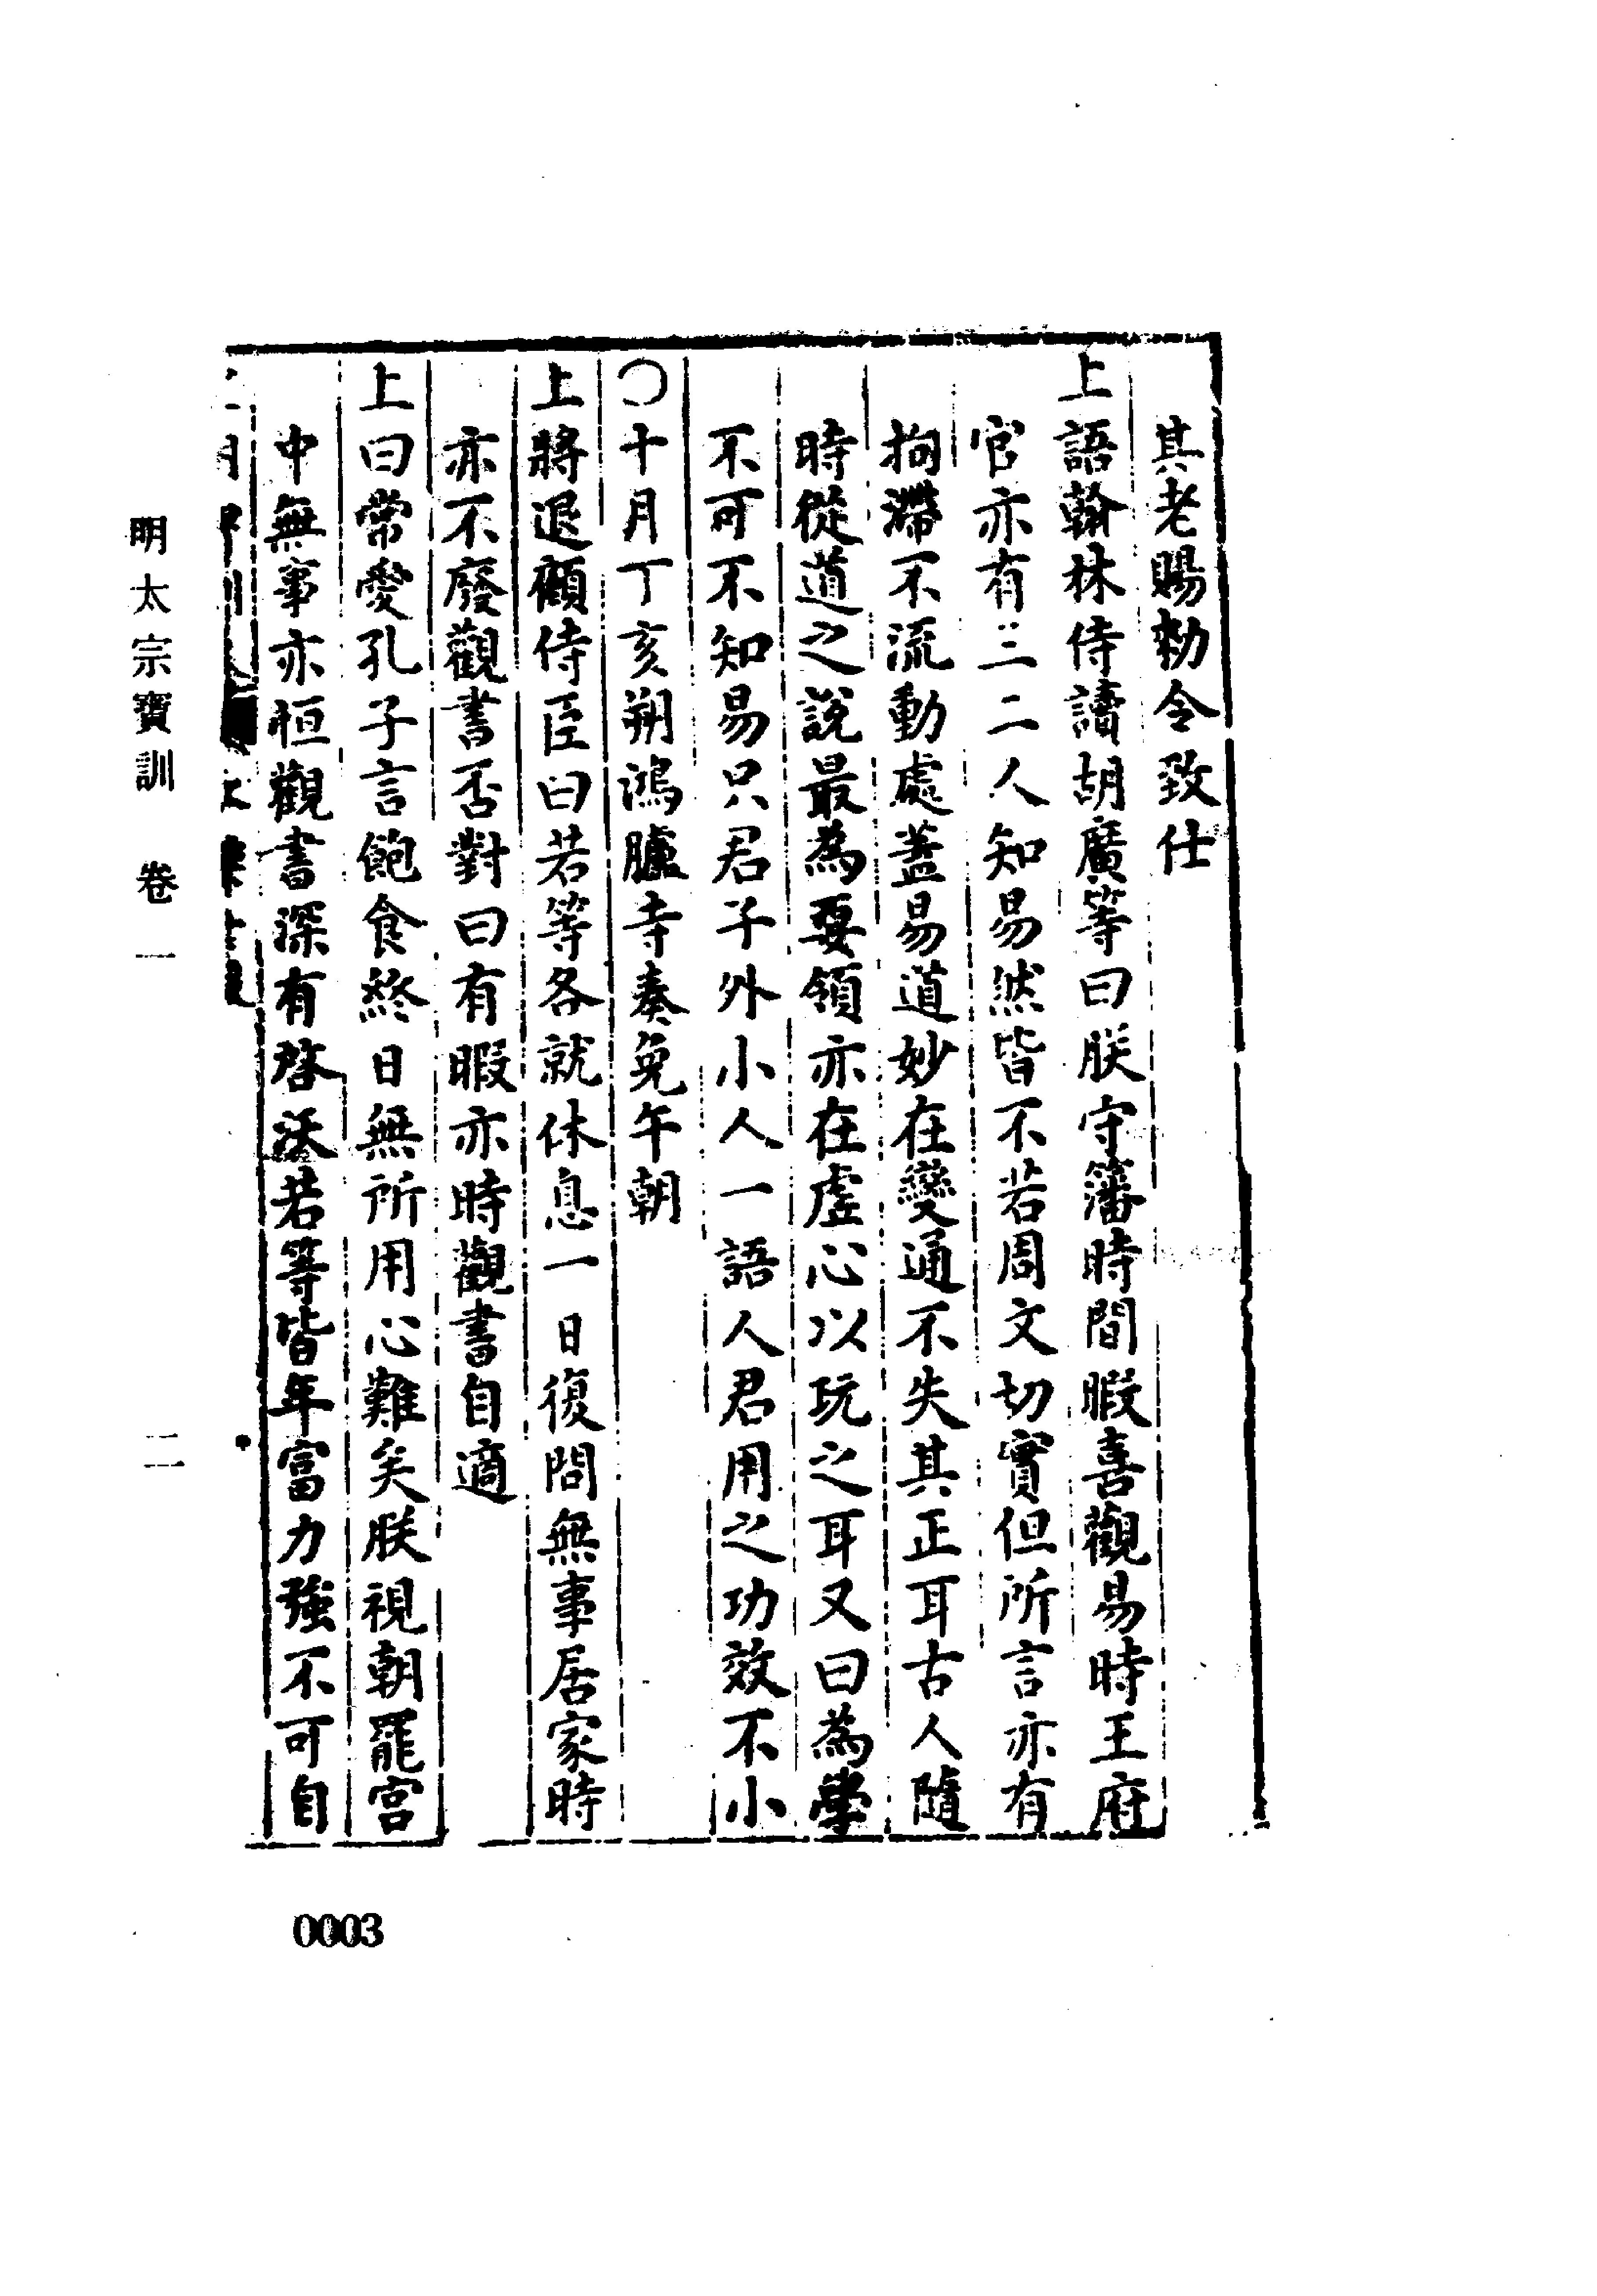 其老賜勑令致仕
上語翰林侍讀胡廣等曰朕守籓時間暇喜觀易時王府
官亦有三二人知易然皆不若周文切實但所言亦有
拘滯不流動處葢易道妙在變通不失其正耳古人隨
時從道之說最為要領亦在虛心以玩之耳又曰為學
不可不知易只君子外小人一語人君用之功效不小
〇十月丁亥朔鴻臚寺奏免午朝
上將退顧侍臣曰若等各就休息一日復問無事居家時
亦不廢觀書否對曰有暇亦時觀書自適
上曰常愛孔子言飽食終日無所用心難矣朕視朝罷宮
中無事亦恒觀書深有啓沃若等皆年富力強不可自
明太宗寶訓 卷一 二
0003